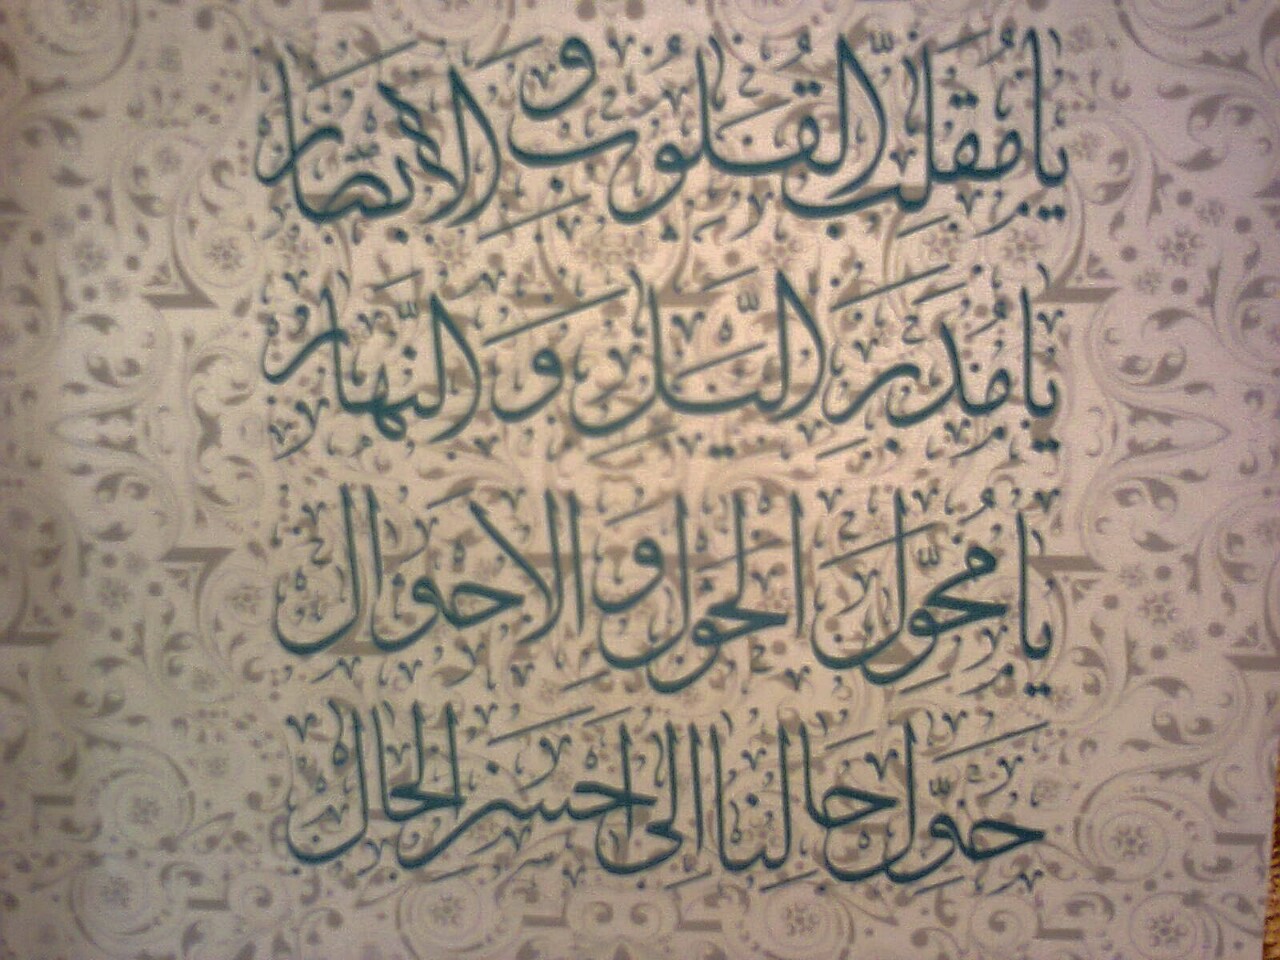 يا مقلب القلوب و الابصار
يا مدبر الليل و النهار
يا محول الحول و الاحوال
حول حالنا الى احسن الحال